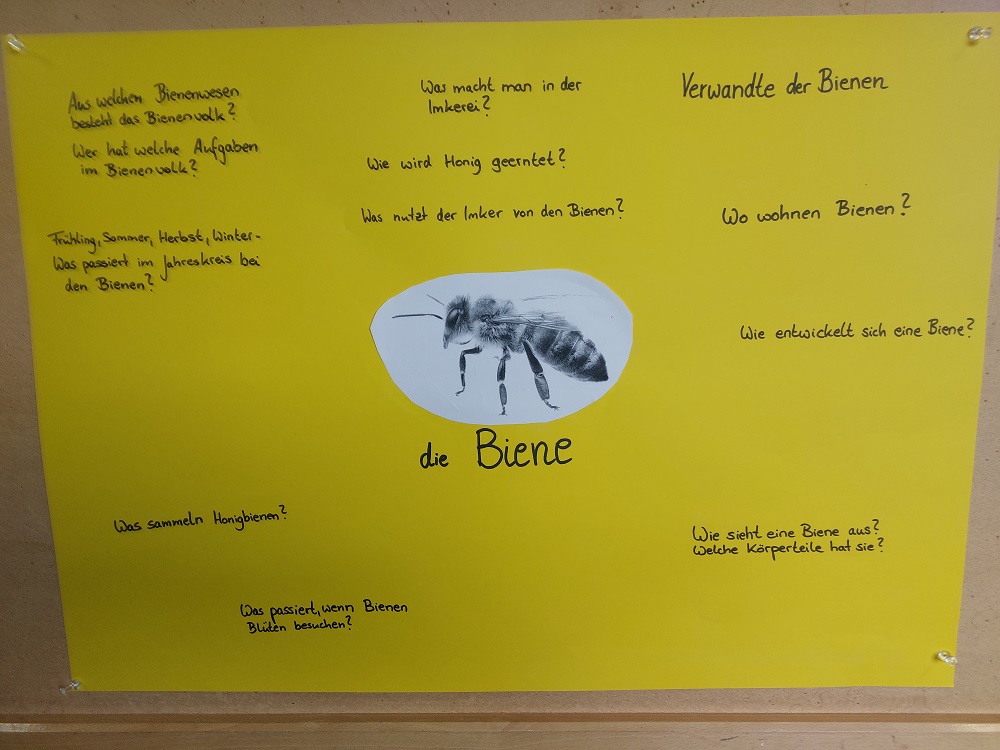 Aus welchen Bienenwesen
besteht das Bienenvolk?
Wer hat welche Aufgaben
im Bienenvolk?
Frühling, Sommer, Herbst, Winter-
Was passiert im Jahreskreis bei
den Bienen?
Was macht man in der
Imkerei?
Wie wird Honig geerntet?
Was nutzt der Imker von den Bienen?
Verwandte der Bienen
Wo wohnen Bienen?
Wie entwickelt sich eine Biene?
die Biene
Was sammeln Honigbienen?
Was passiert, wenn Bienen
Blüten besuchen?
Wie sieht eine Biene aus?
Welche Körperteile hat sie?